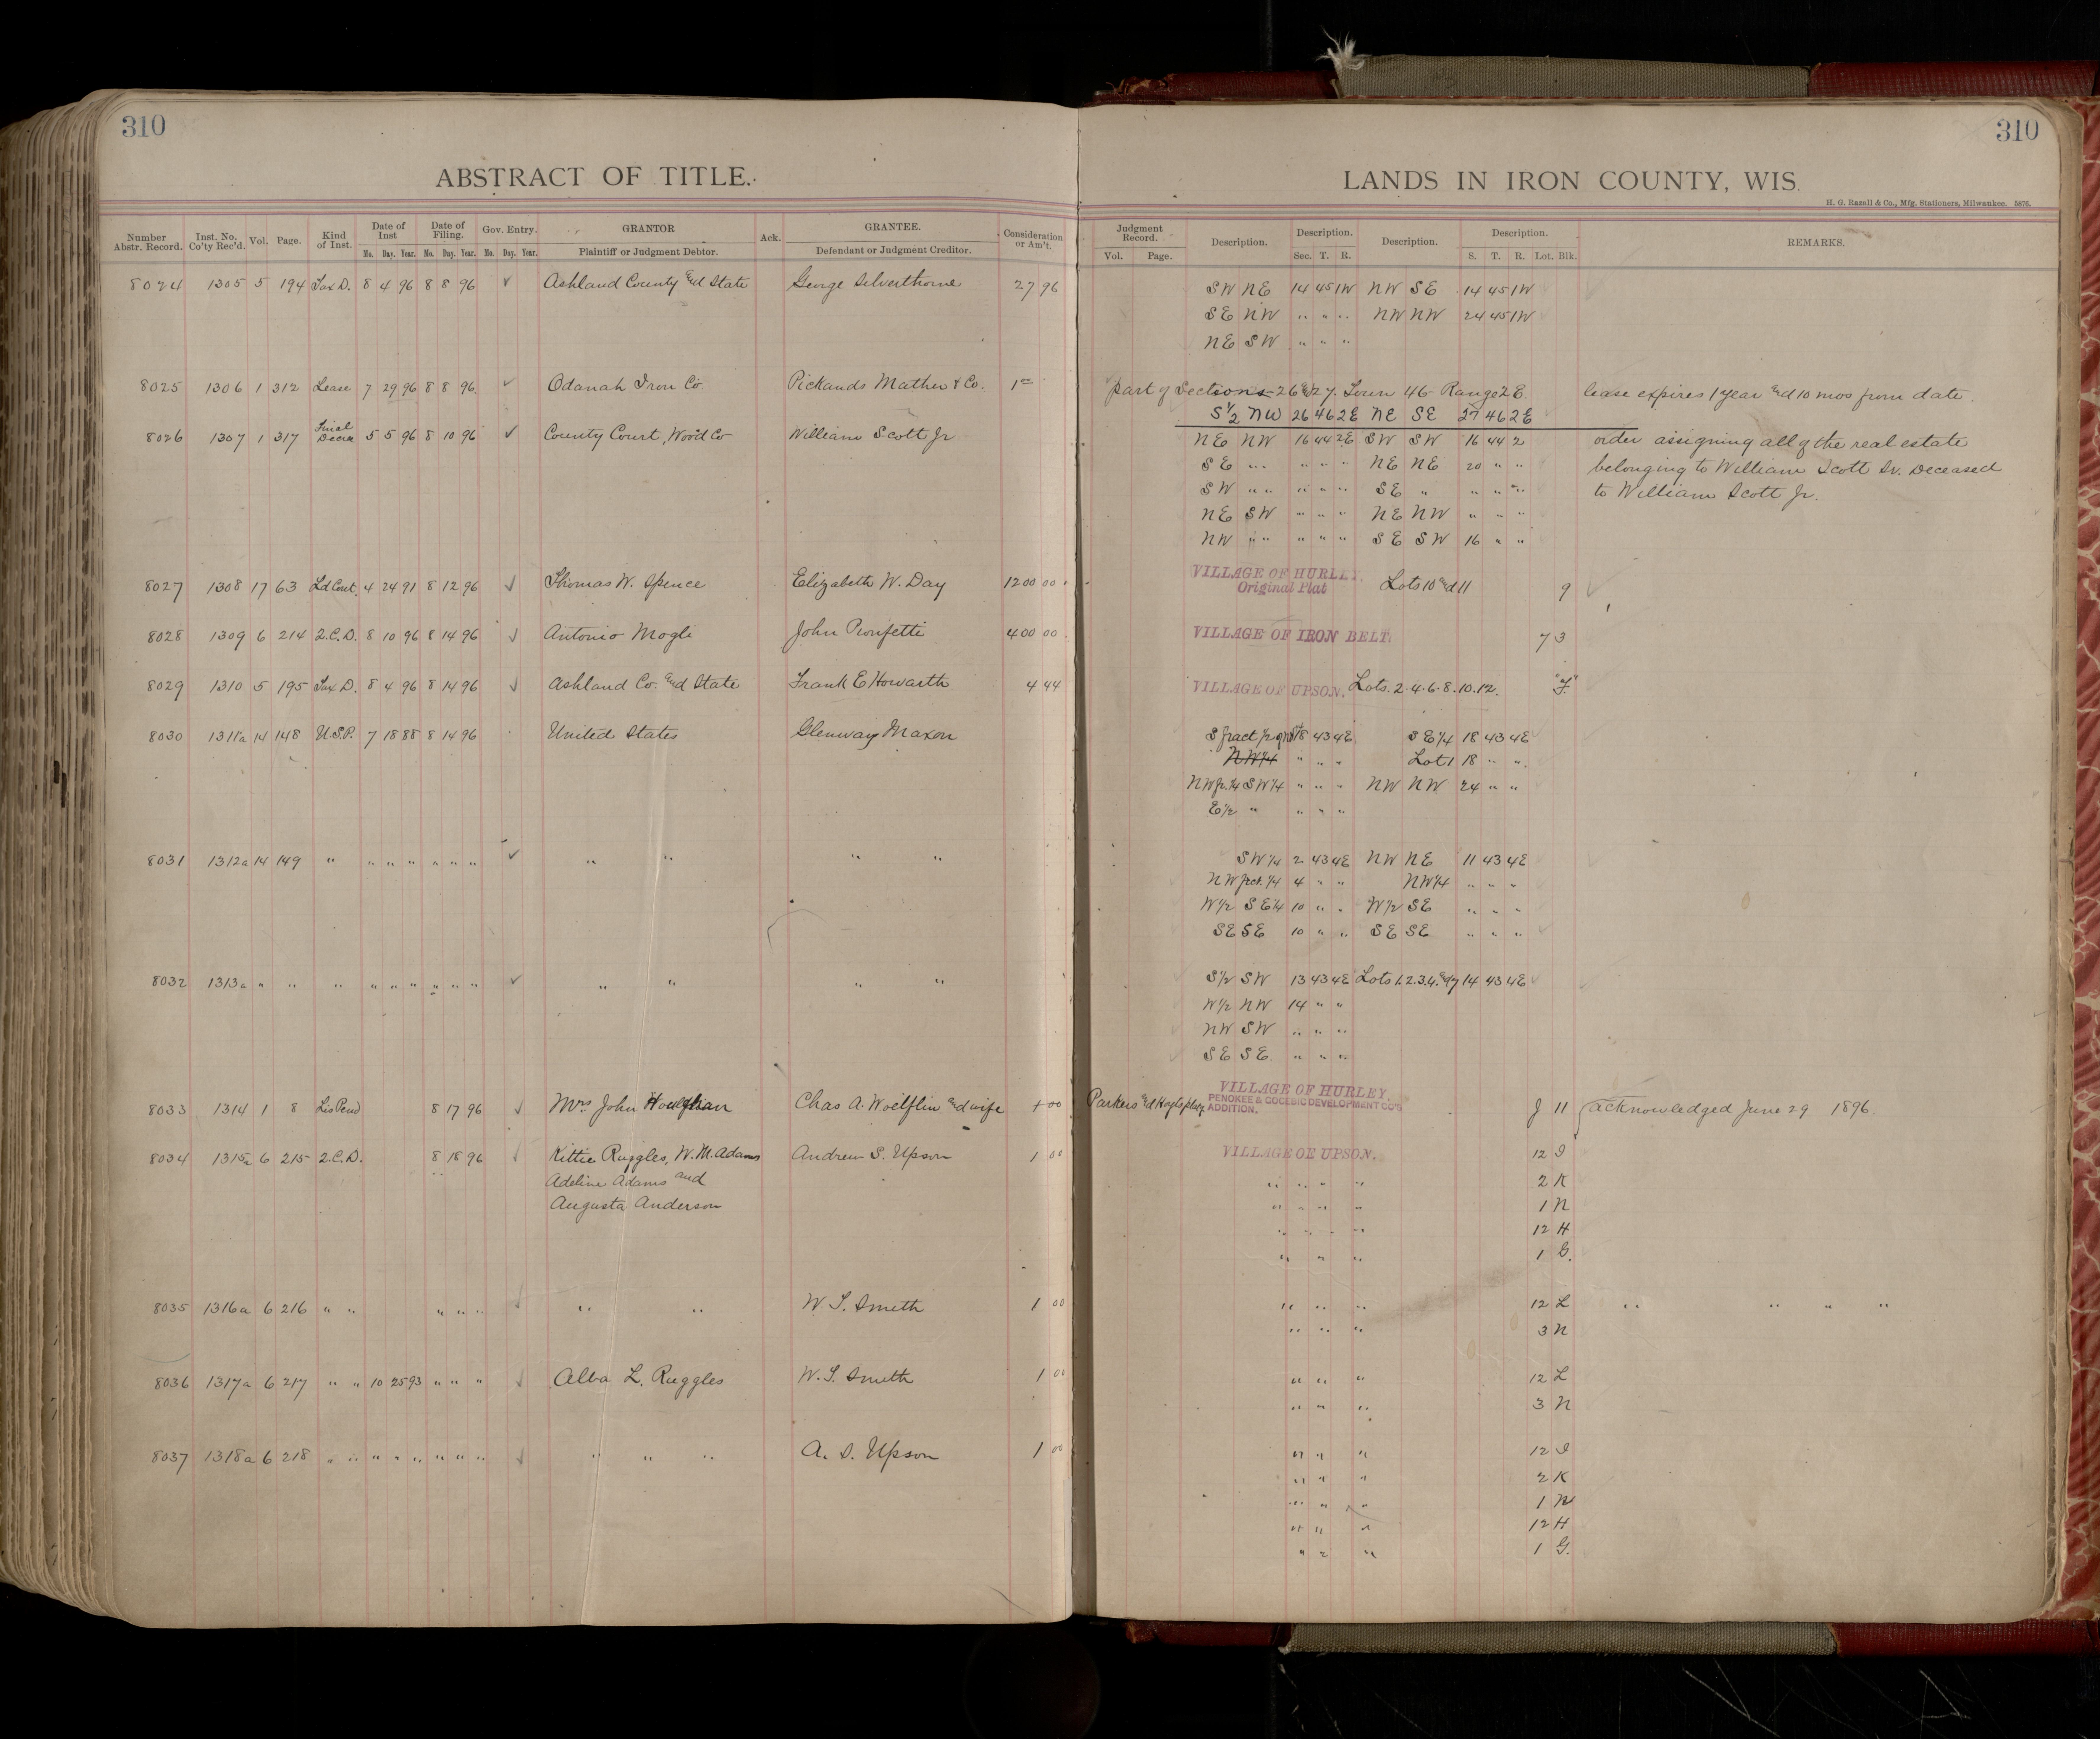 310
310
ABSTRACT OF TITLE.
LANDS IN IRON COUNTY, WIS.
H. G. Razall & Co., Mfg. Stationers, Milwaukee. 5876.
Number Abstr. Record. Inst. No. Co'ty Rec'd. Vol. Page. Kind of Inst. Date of Inst Date of Filing. Gov. Entry. GRANTOR Ack. GRANTEE. Consideration or Am't. Judgment Record. Description. Description. Description. Description. REMARKS.
Mo. Day. Year. Mo. Day. Year. Mo. Day. Year. Plaintiff or Judgment Debtor. Defendant or Judgment Creditor. Vol. Page. Sec. T. R. S. T. R. Lot. Blk.
8024 1305 5 194 Tax D. 8 4 96 8 8 96 ✓ Ashland County and State George Silverthorne 27 96 SW NE 14 45 1W NW SE 14 45 1W
SE NW " " " NW NW 24 45 1W
NE SW " " "
8025 1306 1 312 Lease 7 29 96 8 8 96 ✓ Odanah Iron Co. Pickands Mather & Co. 1 part of Sections 26 and 27. Town 46 Range 2 E. lease expires 1 year and 10 mos from date.
S 1/2 NW 26 46 2E NE SE 27 46 2E
8026 1307 1 317 Final Decree 5 5 96 8 10 96 ✓ County Court, Wood Co William Scott Jr NE NW 16 44 2E SW SW 16 44 2 order assigning all of the real estate
SE " " " " " NE NE 20 " " belonging to William Scott Sr. Deceased
SW " " " " " SE " " " " to William Scott Jr.
NE SW " " " NE NW " " "
NW " " " " " SE SW 16 " "
8027 1308 17 63 Ld Cont. 4 24 91 8 12 96 ✓ Thomas W. Spence Elizabeth W. Day 1200 00 VILLAGE OF HURLEY. Original Plat Lots 10 and 11 9
8028 1309 6 214 2.C.D. 8 10 96 8 14 96 ✓ Antonio Mogli John 400 00 VILLAGE OF IRON BELT. 7 3
8029 1310 5 195 Tax D. 8 4 96 8 14 96 ✓ Ashland Co. and State Frank E Howarth 4 44 VILLAGE OF UPSON. Lots. 2. 4. 6. 8. 10. 12.
8030 1311a 14 148 U.S.P. 7 18 88 8 14 96 United States Glenway Maxon S fract 18 43 4E SE 1/4 18 43 4E
NW 1/4 " " " Lot 1 18 " "
NW fr. 1/4 SW 1/4 " " " NW NW 24 " "
E 1/2 " " " "
8031 1312a 14 149 " " " " " " " ✓ " " " " SW 1/4 2 43 4E NW NE 11 43 4E
NW frct. 1/4 4 " " NW 1/4 " " "
W 1/2 SE 1/4 10 " " W 1/2 SE " " "
SE SE 10 " " SE SE " " "
8032 1313a " " " " " " " " " ✓ " " " " S 1/2 SW 13 43 4E Lots 1. 2. 3. 4. and 7 14 43 4E
W 1/2 NW 14 " "
NW SW " " "
SE SE. " " "
8033 1314 1 8 Lis Pend 8 17 96 ✓ Mrs John Chas A. Woelflin and wife Parkers and VILLAGE OF HURLEY PENOKEE & GOGEBIC DEVELOPMENT CO'S ADDITION. J 11 acknowledged June 29 1896.
8034 1315a 6 215 2.C.D. 8 18 96 ✓ Kittie Ruggles, W. M. Adams Andrew S. Upson 1 00 VILLAGE OF UPSON. 12 I
Adeline Adams and " " " " 2 K
Augusta Anderson " " " " 1 N
" " " " 12 H
" " " 1 G.
8035 1316a 6 216 " " " " " ✓ " " W. S. Smith 1 00 " " " 12 L " " " "
" " " 3 N
8036 1317a 6 217 " " 10 25 93 " " " ✓ Alba L. Ruggles W. S. Smith 1 00 " " " 12 L
" " " 3 N
8037 1318a 6 218 " " " " " " " " ✓ " " " A. S. Upson 1 00 " " " 12 I
" " " 2 K
" " " 1 N
" " " 12 H
" " " 1 G.